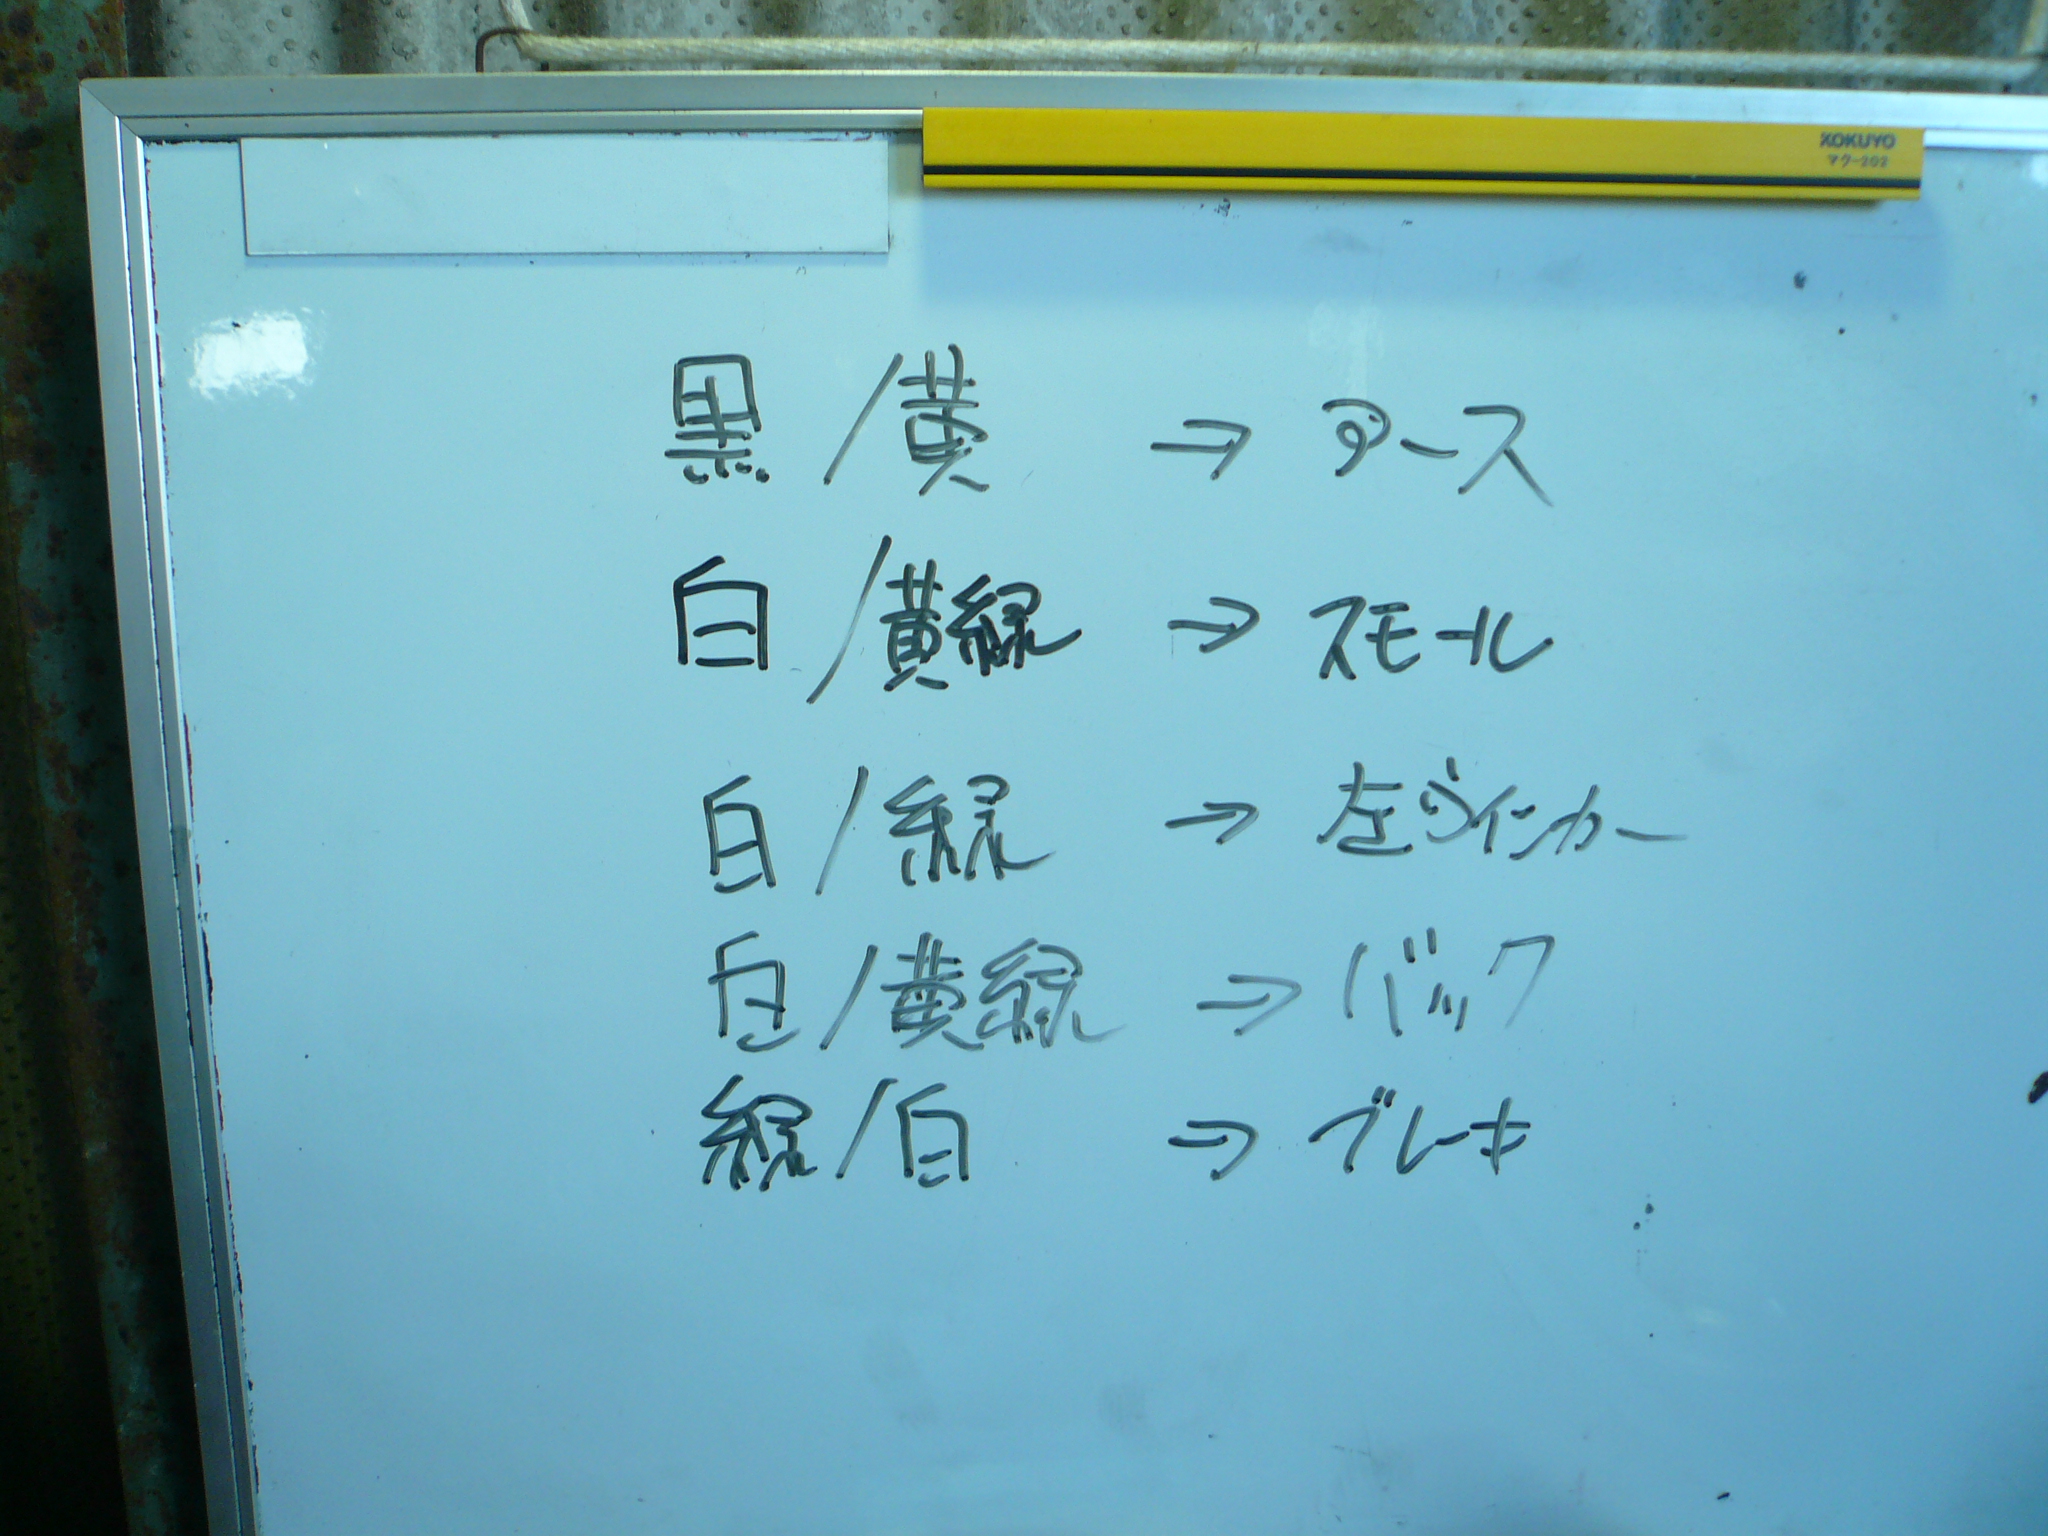 KOKUYO
マク-202
黒/黄 → アース
白/黄緑 → スモール
白/緑 → 左ウインカー
白/黄緑 → バック
緑/白 → ブレーキ